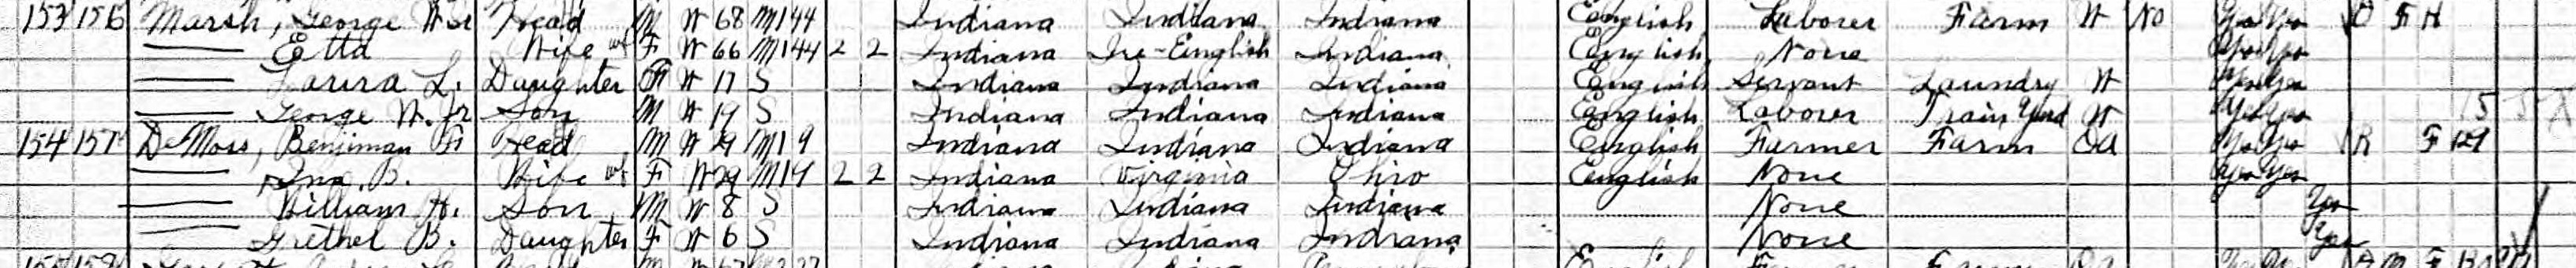 153 156 Marsh, George W Sr Head M W 68 M1 44 Indiana Indiana Indiana English Laborer Farm W No Yes Yes O F H
Etta Wife F W 66 M1 44 2 2 Indiana Ire-English Indiana English None Yes Yes
Laura L. Daughter F W 17 S Indiana Indiana Indiana English Servant Laundry W Yes Yes
George W. Jr Son M W 19 S Indiana Indiana Indiana English Laborer Train Yard W Yes Yes
154 157 DeMoss, Benjiman F Head M W 29 M1 9 Indiana Indiana Indiana English Farmer Farm OA Yes Yes R F 129
Ina B. Wife F W 29 M1 9 2 2 Indiana Virginia Ohio English None Yes Yes
William H. Son M W 8 S Indiana Indiana Indiana None Yes
Grethel B. Daughter F W 6 S Indiana Indiana Indiana None Yes